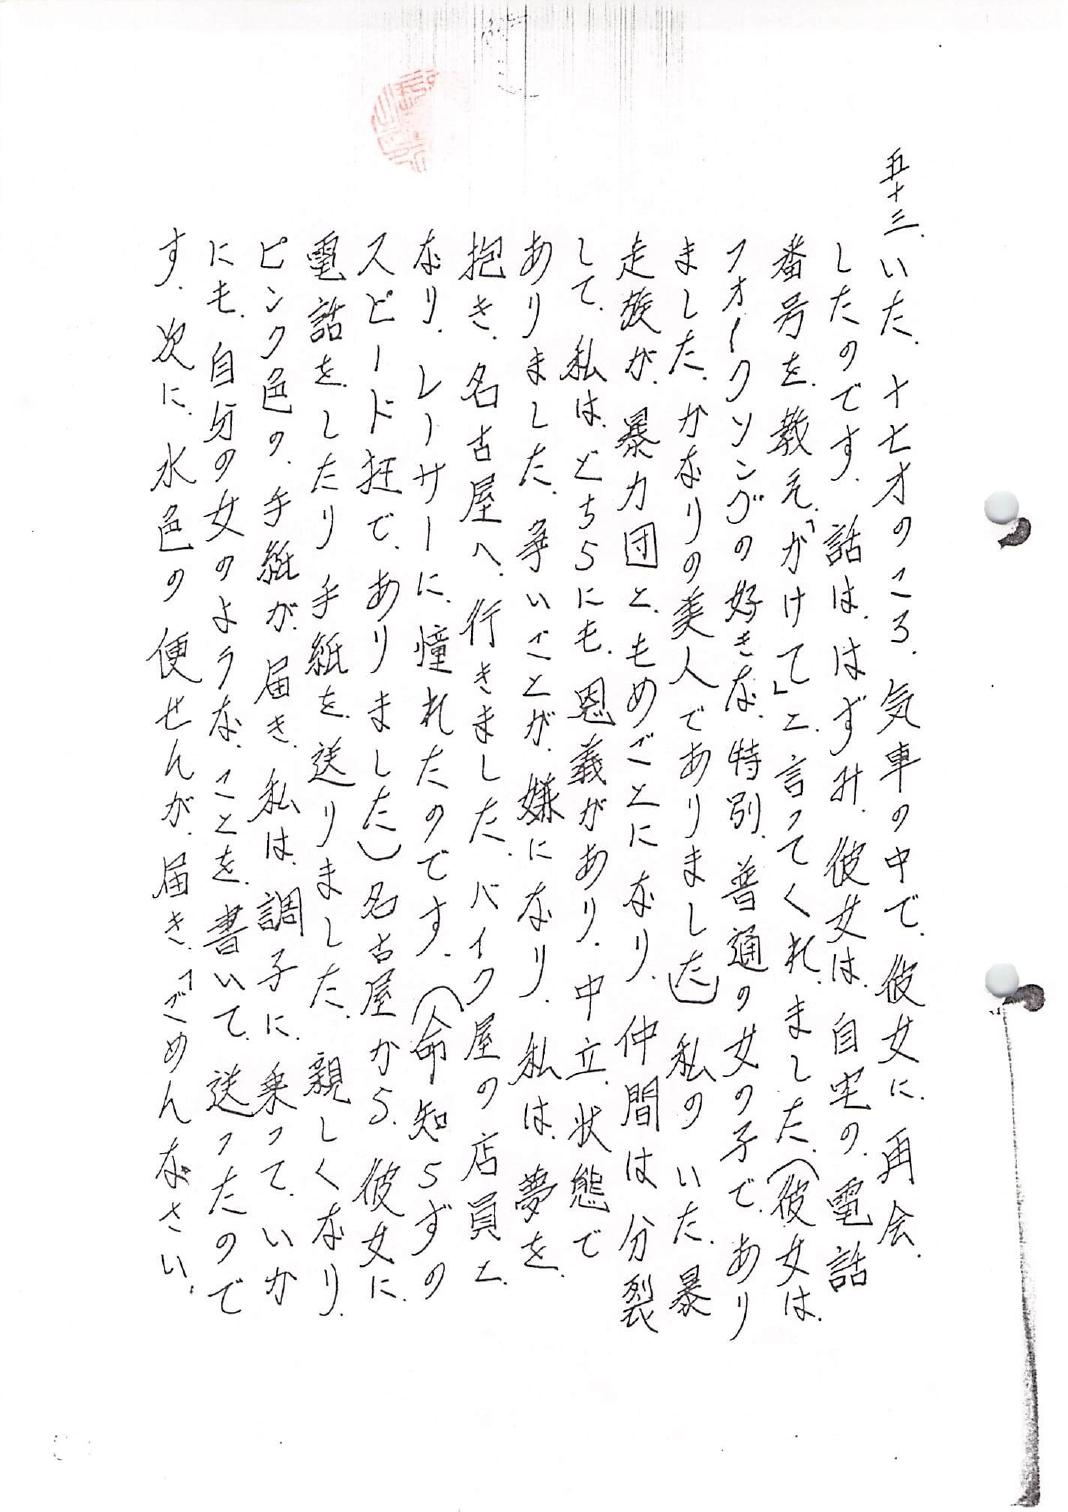 五十三、いた、十七才のころ、気車の中で、彼女に、再会、
したのです、話は、はずみ、彼女は、自宅の、電話
番号を、教え、「かけて」と、言ってくれ、ました、(彼女は、
フォークソングの好きな、特別、普通の女の子で、あり
ました、かなりの美人でありました) 私の、いた、暴
走族が、暴力団と、もめごとになり、仲間は分裂
して、私は、どちらにも、恩義があり、中立、状態で
ありました、争いごとが、嫌になり、私は、夢を、
抱き、名古屋へ、行きました、バイク屋の店員と、
なり、レーサーに、憧れたのです、(命知らずの
スピード狂で、ありました) 名古屋から、彼女に、
電話を、したり、手紙を、送りました、親しくなり、
ピンク色の、手紙が、届き、私は、調子に、乗って、いか
にも、自分の女のような、ことを、書いて、送ったので
す、次に、水色の、便せんが、届き、「ごめんなさい、